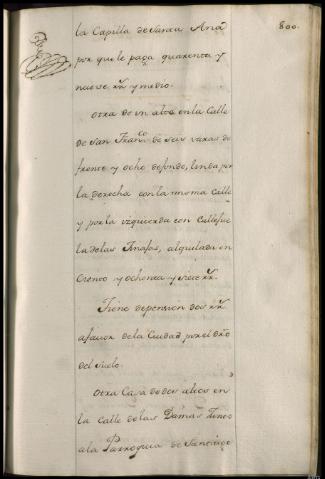 800.
la Capilla de Santa Ana
por que le paga quarenta y
nueve rr.ˢ y medio.
Otra de un alto en la Calle
de San Fran.co de seis varas de
frente y ocho de fondo, linda por
la derecha con la misma Calle
y por la izquierda con Callejue
la de las Tinajas, alquilada en
Ciento y ochenta y siete rr.ˢ
Tiene de pension dos rr.ˢ
a favor de la Ciudad por el dro
del suelo.
Otra Casa de dos altos en
la Calle de las Damas linea
a la Parroquia de Santiago